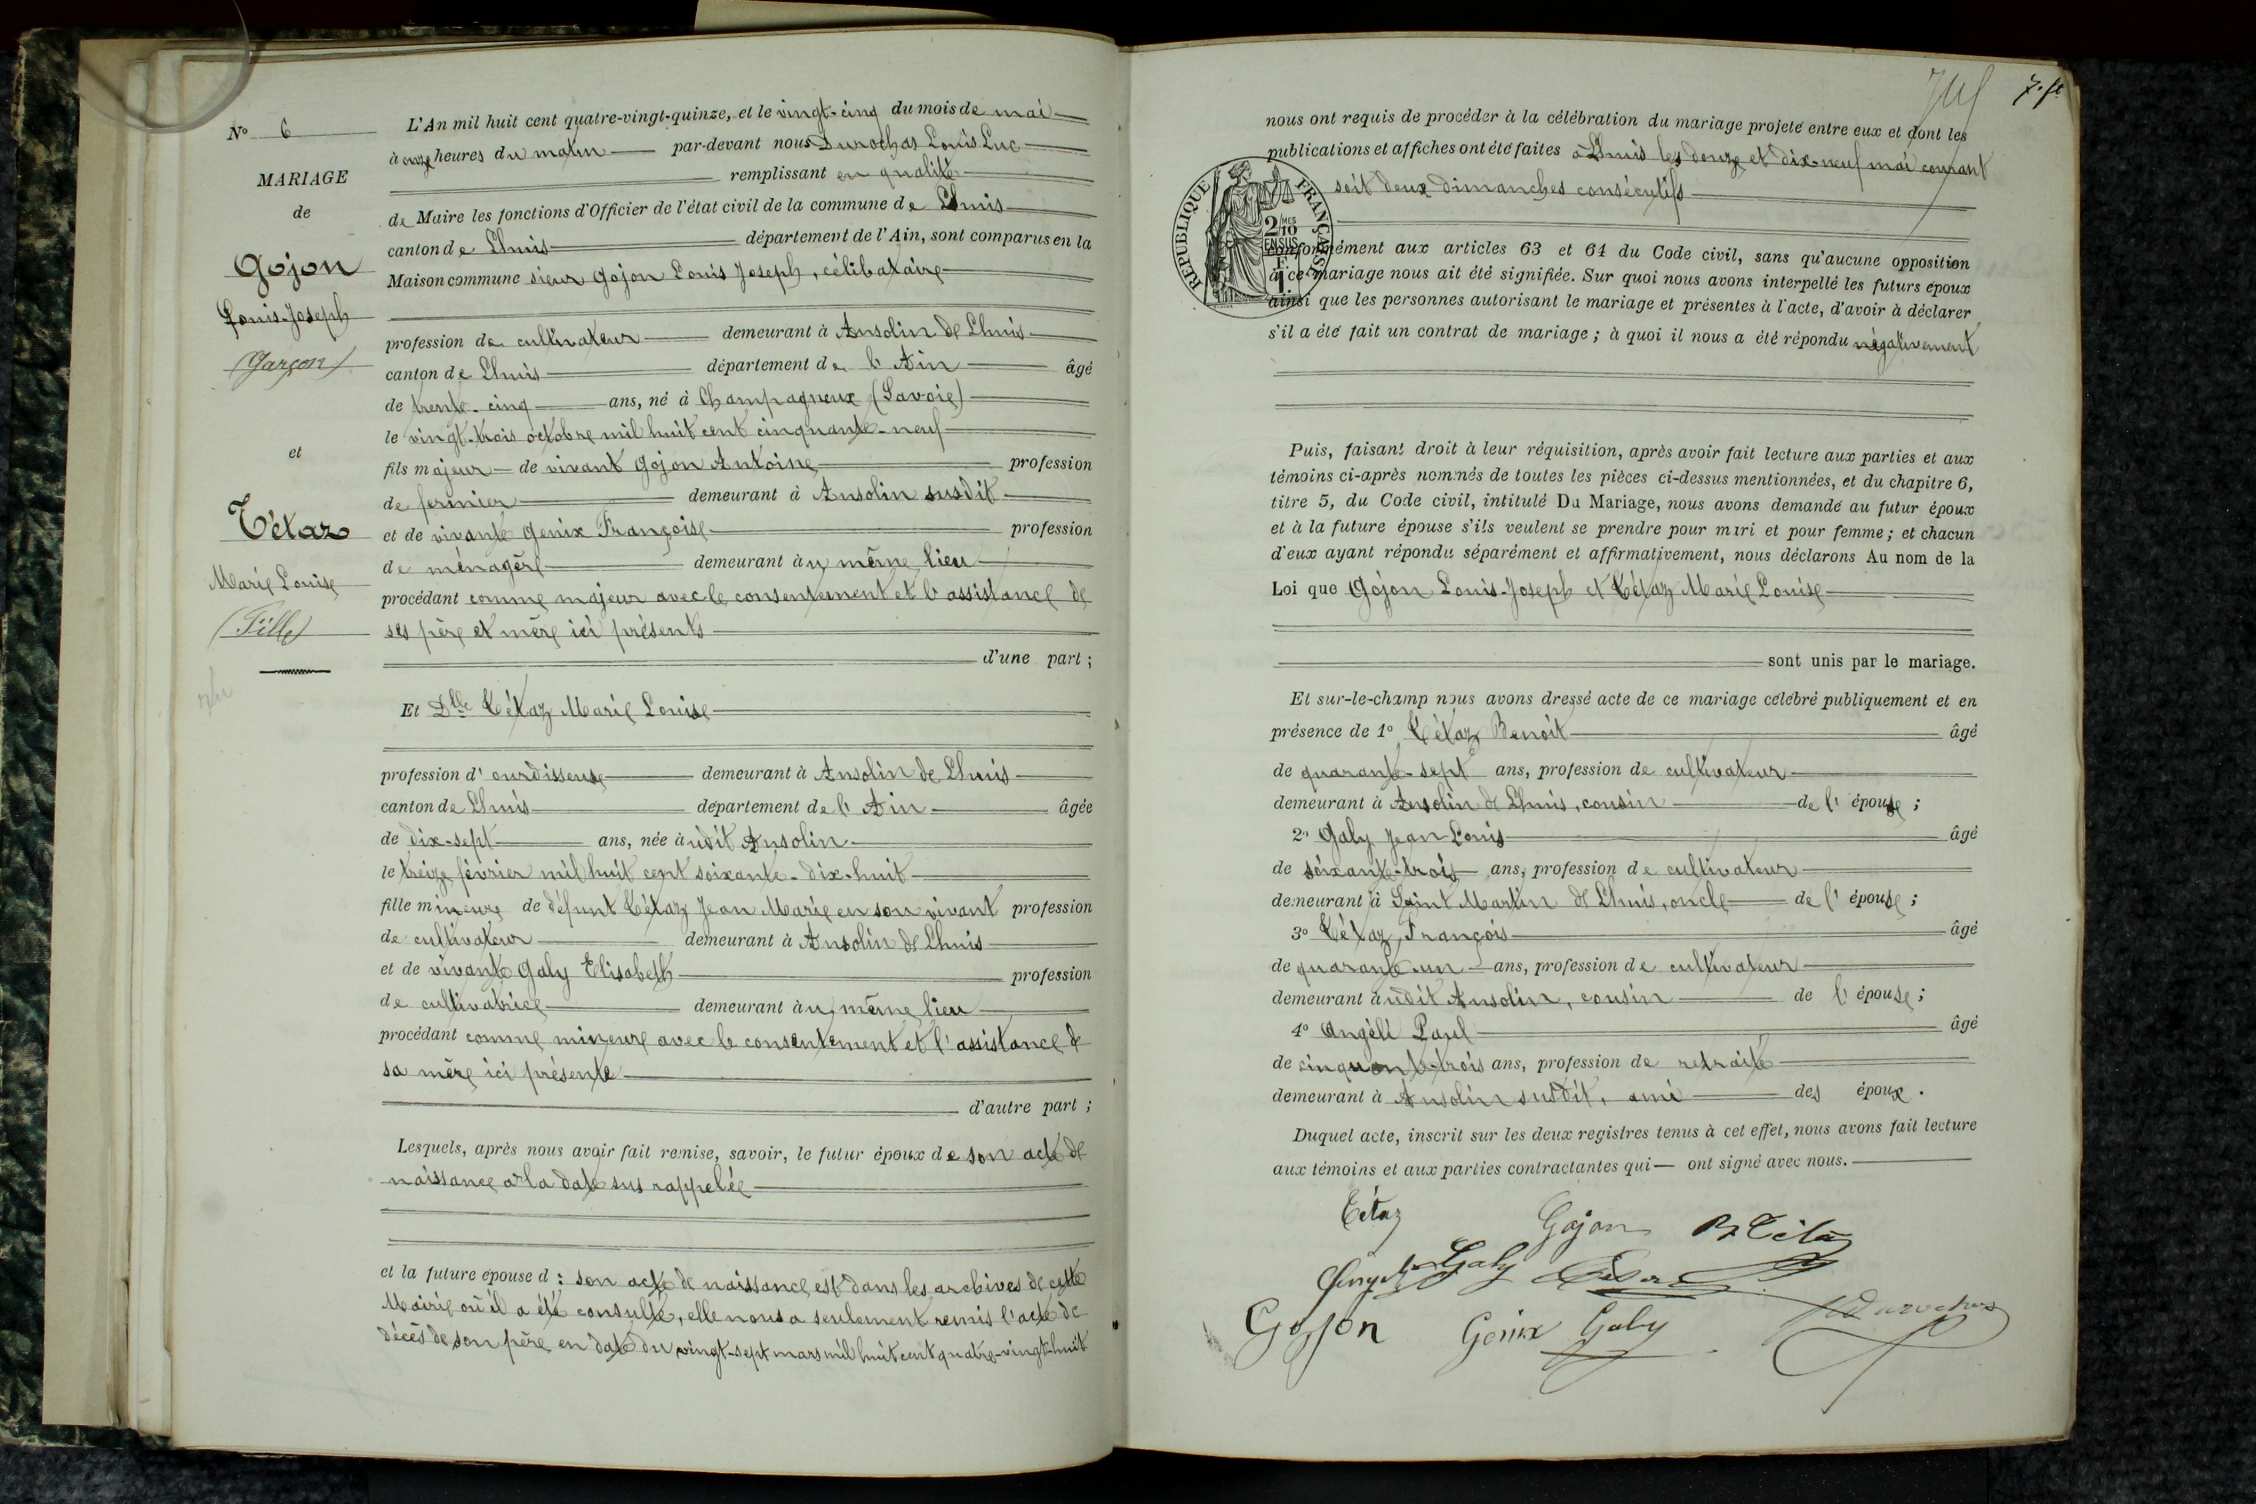 N° 6
MARIAGE
de
Gojon
Louis-Joseph
(Garçon)
et
Tétaz
Marie Louise
(Fille)
L'An mil huit cent quatre-vingt-quinze, et le vingt-cinq du mois de mai
à onze heures du matin par-devant nous Durochas Louis Luc
remplissant en qualité
de Maire les fonctions d'Officier de l'état civil de la commune de Lhuis
canton de Lhuis département de l'Ain, sont comparus en la
Maison commune sieur Gojon Louis Joseph, célibataire
profession de cultivateur demeurant à Ansolin de Lhuis
canton de Lhuis département de l'Ain âgé
de trente-cinq ans, né à Champagneux (Savoie)
le vingt-trois octobre mil huit cent cinquante-neuf
fils majeur de vivant Gojon Antoine profession
de fermier demeurant à Ansolin susdit
et de vivante Genix Françoise profession
de ménagère demeurant au même lieu
procédant comme majeur avec le consentement et l'assistance de
ses père et mère ici présents
d'une part;
Et Dlle Tétaz Marie Louise
profession d'ourdisseuse demeurant à Ansolin de Lhuis
canton de Lhuis département de l'Ain âgée
de dix-sept ans, née àudit Ansolin
le treize février mil huit cent soixante-dix-huit
fille mineure de défunt Tétaz Jean Marie en son vivant profession
de cultivateur demeurant à Ansolin de Lhuis
et de vivante Galy Elisabeth profession
de cultivatrice demeurant au même lieu
procédant comme mineure avec le consentement et l'assistance de
sa mère ici présente
d'autre part;
Lesquels, après nous avoir fait remise, savoir, le futur époux de son acte de
naissance à la date sus rappelée
et la future épouse d: son acte de naissance est dans les archives de cette
Mairie où il a été consulté, elle nous a seulement remis l'acte de
décès de son père en date du vingt-sept mars mil huit cent quatre-vingt-huit
nous ont requis de procéder à la célébration du mariage projeté entre eux et dont les
publications et affiches ont été faites à Lhuis les douze et dix-neuf mai courant
soit deux dimanches consécutifs
RÉPUBLIQUE FRANÇAISE
2/10 MES
EN SUS
1 F.
conformément aux articles 63 et 64 du Code civil, sans qu'aucune opposition
à ce mariage nous ait été signifiée. Sur quoi nous avons interpellé les futurs époux
ainsi que les personnes autorisant le mariage et présentes à l'acte, d'avoir à déclarer
s'il a été fait un contrat de mariage; à quoi il nous a été répondu négativement
Puis, faisant droit à leur réquisition, après avoir fait lecture aux parties et aux
témoins ci-après nommés de toutes les pièces ci-dessus mentionnées, et du chapitre 6,
titre 5, du Code civil, intitulé Du Mariage, nous avons demandé au futur époux
et à la future épouse s'ils veulent se prendre pour mari et pour femme; et chacun
d'eux ayant répondu séparément et affirmativement, nous déclarons Au nom de la
Loi que Gojon Louis-Joseph et Tétaz Marie Louise
sont unis par le mariage.
Et sur-le-champ nous avons dressé acte de ce mariage célébré publiquement et en
présence de 1° Tétaz Benoit âgé
de quarante-sept ans, profession de cultivateur
demeurant à Ansolin de Lhuis, cousin de l'épouse;
2° Galy Jean Louis âgé
de soixante-trois ans, profession de cultivateur
demeurant à Saint Martin de Lhuis, oncle de l'épouse;
3° Tétaz François âgé
de quarante-un ans, profession de cultivateur
demeurant àudit Ansolin, cousin de l'épouse;
4° Angéli Paul âgé
de cinquante-trois ans, profession de retraité
demeurant à Ansolin susdit, ami des époux.
Duquel acte, inscrit sur les deux registres tenus à cet effet, nous avons fait lecture
aux témoins et aux parties contractantes qui ont signé avec nous.
Tétaz Gojon B Tétaz
Galy
Gojon Genix Galy